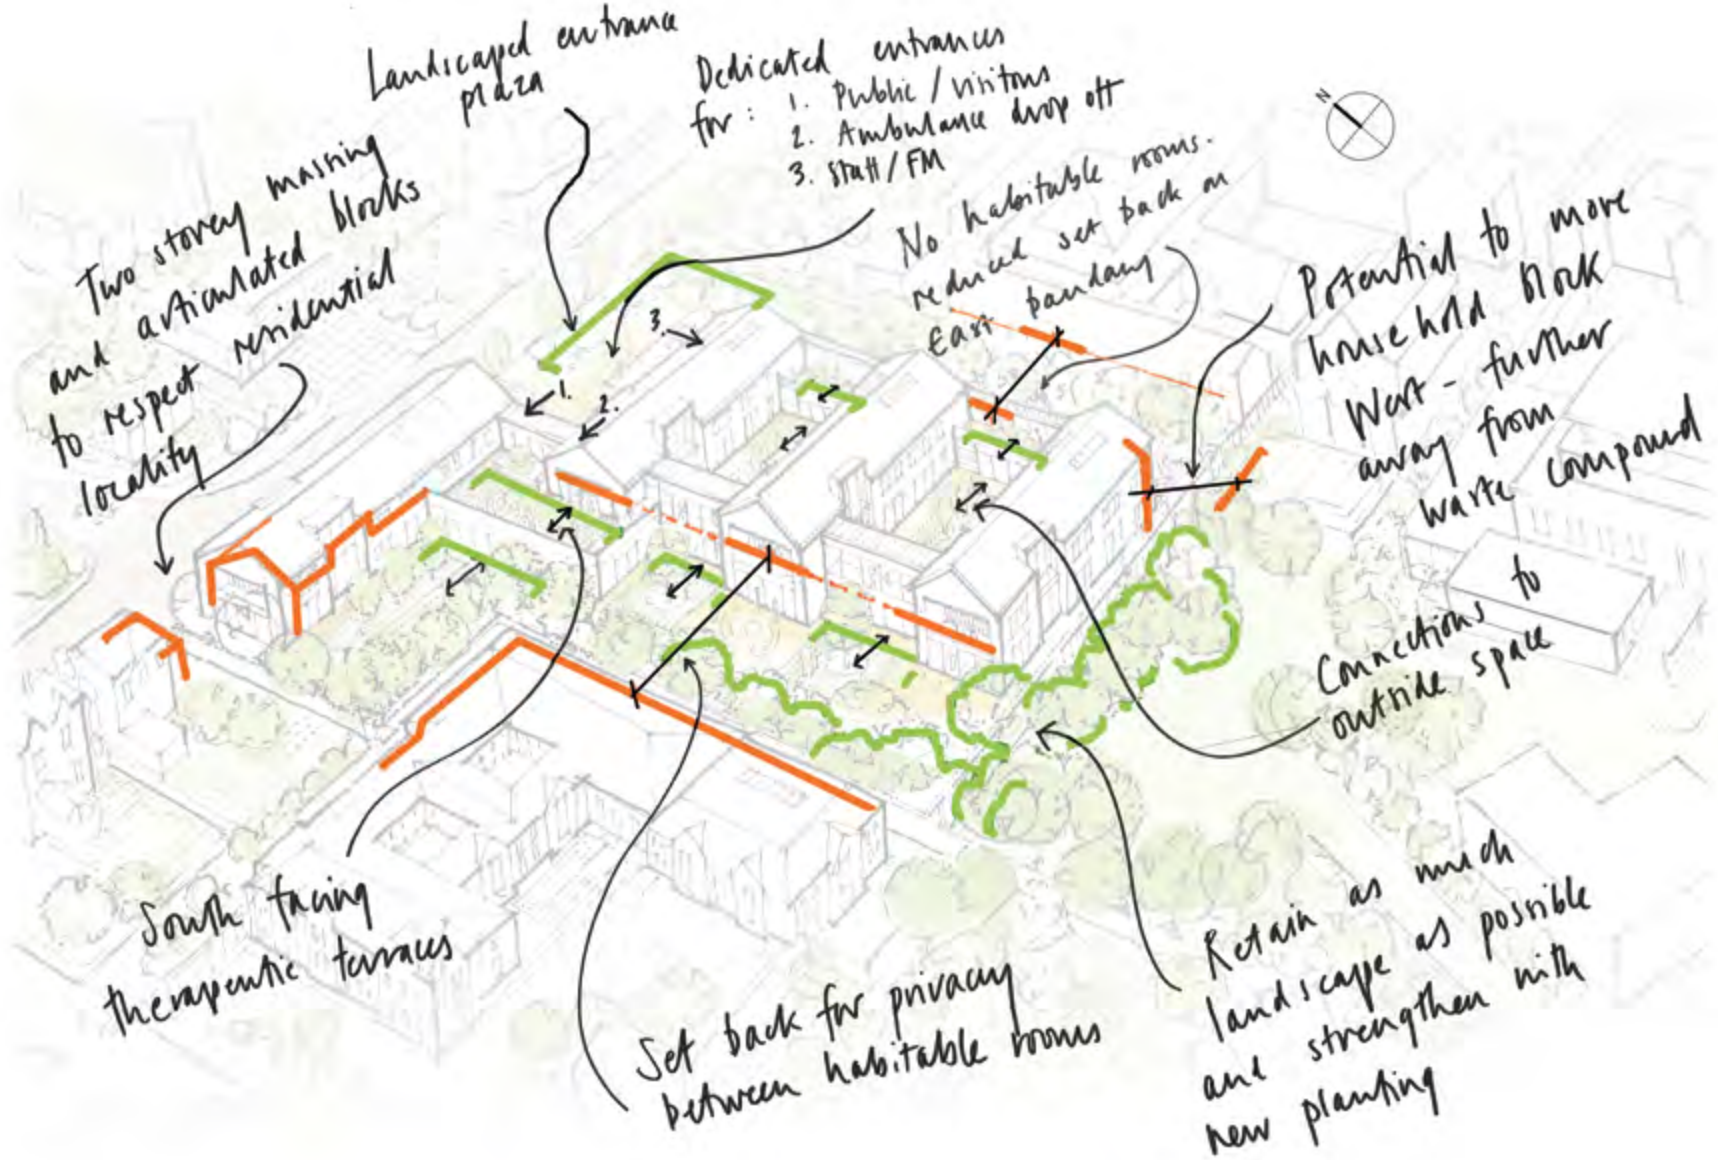 Landscaped entrance
plaza
Dedicated entrances
for: 1. Public / visitors
2. Ambulance drop off
3. Staff / FM
N
Two storey massing
and articulated blocks
to respect residential
locality
No habitable rooms.
reduced set back on
East boundary
Potential to more
household block
West - further
away from
waste compound
3.
1.
2.
Connections to
outside space
South facing
therapeutic terraces
Set back for privacy
between habitable rooms
Retain as much
landscape as possible
and strengthen with
new planting